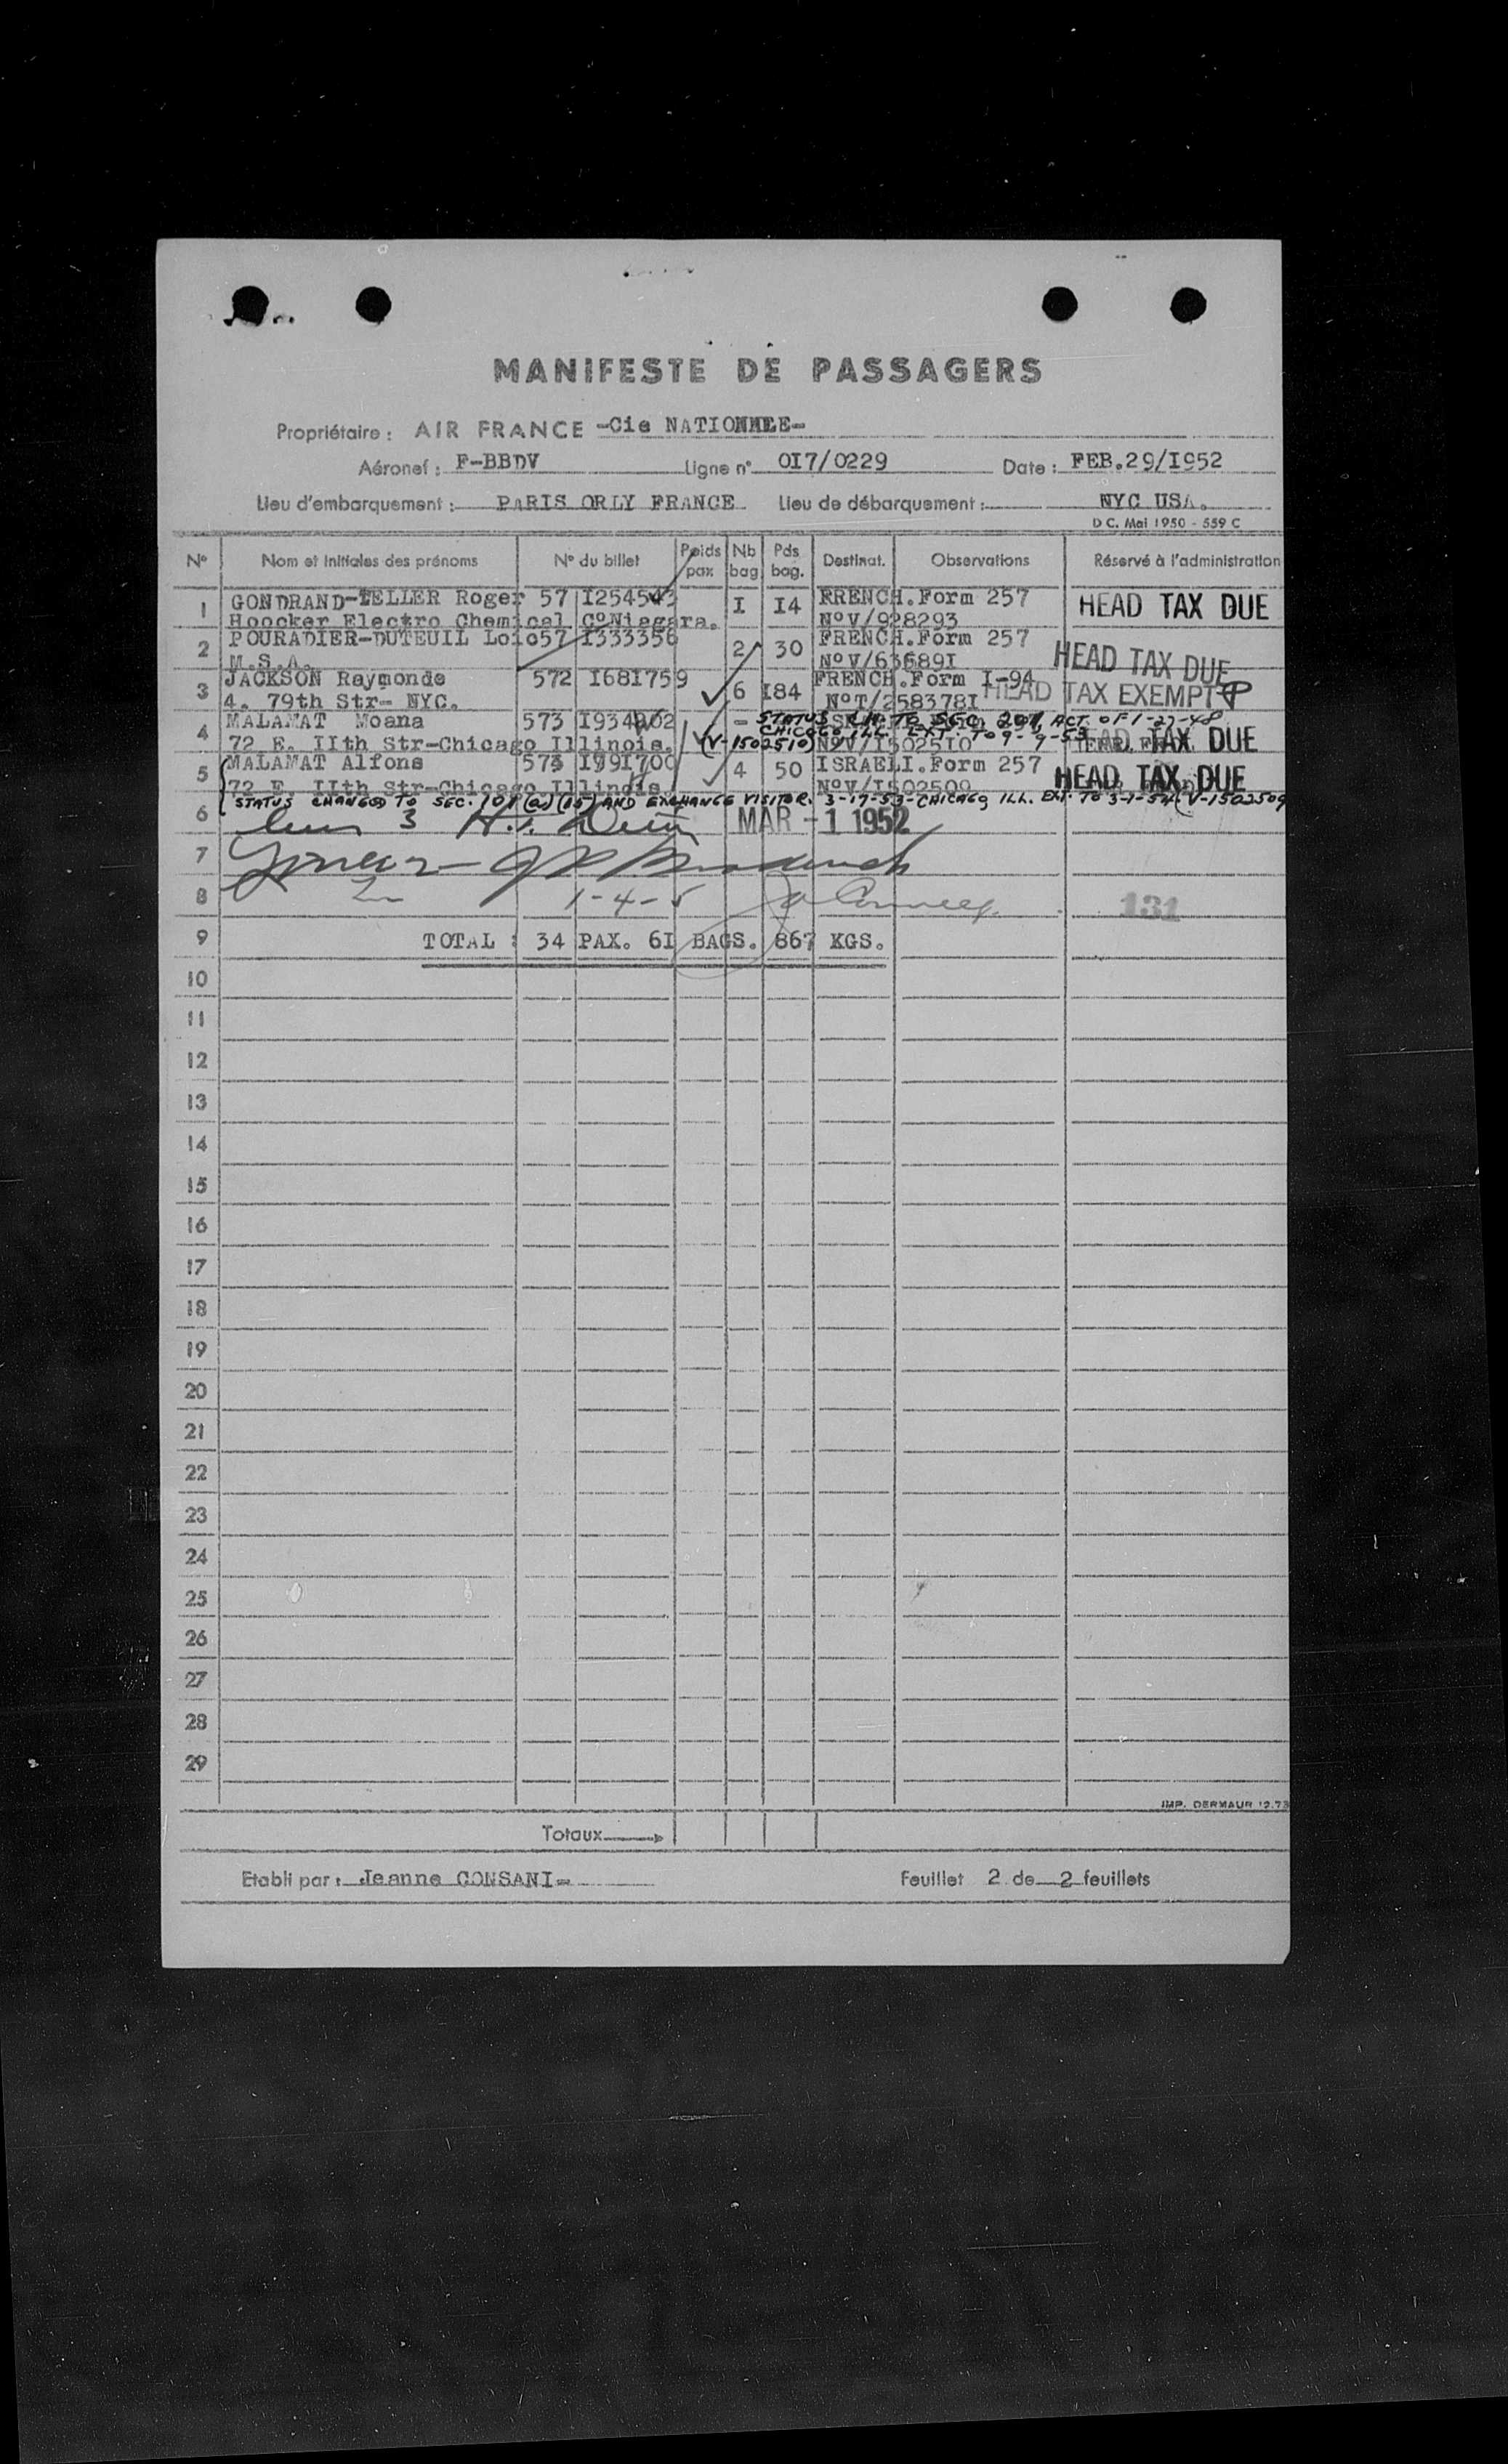 MANIFESTE DE PASSAGERS
Propriétaire : AIR FRANCE -Cie NATIONNLE-
Aéronef : F-BBDV Ligne n° OI7/0229 Date : FEB.29/I952
Lieu d'embarquement : PARIS ORLY FRANCE Lieu de débarquement : NYC USA.
D C. Mai 1950 - 559 C
N° Nom et initiales des prénoms N° du billet Poids pax Nb bag Pds bag. Destinat. Observations Réservé à l'administration
1 GONDRAND-TELLER Roger 57 I254543 I I4 FRENCH.Form 257 HEAD TAX DUE
Hoocker Electro Chemical C°Niagara. N°V/928293
2 POURADIER-DUTEUIL Loic 57 I333356 2 30 FRENCH.Form 257 HEAD TAX DUE
M.S.A. N°V/636891
3 JACKSON Raymonde 572 I68I759 6 I84 FRENCH.Form I-94 HEAD TAX EXEMPT
4. 79th Str- NYC. N°T/258378I
4 MALAMAT Moana 573 I934202 - STATUS TO SEC. 201, ACT. OF 1-27-48
CHICAGO ILL. EXT. TO 9-9-53
72 E. IIth Str-Chicago Illinois. (V-1502510) N°V/I5025I0 HEAD TAX DUE
5 MALAMAT Alfons 573 I991700 4 50 ISRAELI.Form 257 HEAD TAX DUE
72 E. IIth Str-Chicago Illinois. N°V/I502509
STATUS CHANGED TO SEC. 101 (a) (15) AND EXCHANGE VISITOR. 3-17-53-CHICAGO ILL. EXT. TO 3-1-54 (V-1502509
6 3 MAR -1 1952
7
8 1-4-5 131
9 TOTAL : 34 PAX. 6I BAGS. 867 KGS.
10
11
12
13
14
15
16
17
18
19
20
21
22
23
24
25
26
27
28
29
IMP. DERMAUR 12.73
Totaux
Etabli par : Jeanne CONSANI-
Feuillet 2 de 2 feuillets